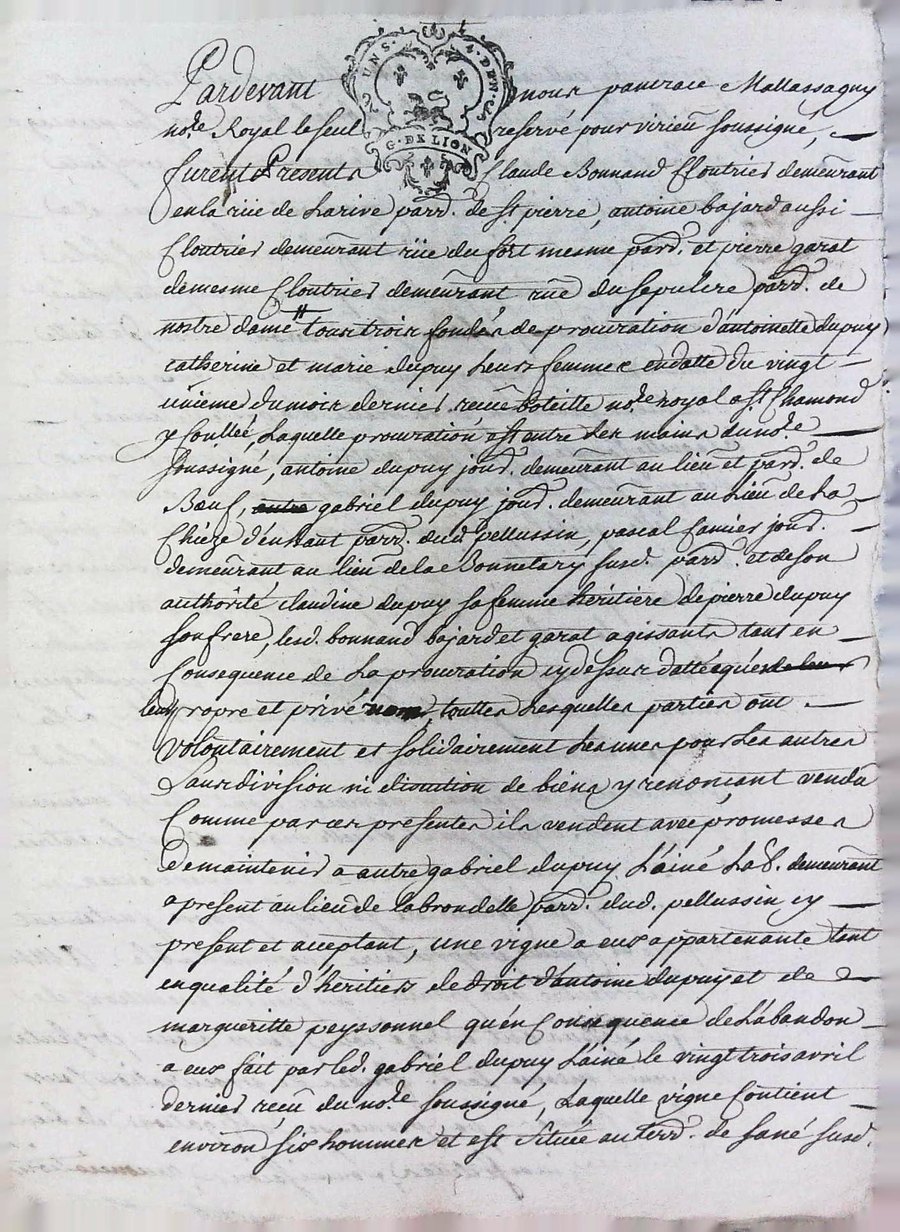 UNS. 4. DEN.
G. DE LION
Pardevant nous pancrace Mallassagny
no.re Royal le seul reservé pour virieu soussigné,
furent Presents Claude Bonnand Cloutrier demeurant
en la rüe de Larive parr. de st. pierre, antoine bajard aussi
Cloutrier demeurant rüe du fort mesme parr. et pierre garat
de mesme Cloutrier demeurant rüe du sepulcre parr. de
nostre dame tous trois fondés de procuration d'antoinette dupuy
catherine et marie dupuy Leurs femmes en datte du vingt
unieme du mois dernier recüe boteille no.re royal a st. Chamond
y Coullée, Laquelle procuration est entre Les mains du no.re
soussigné, antoine dupuy jour. demeurant au lieu et parr. de
Bœuf, autre gabriel dupuy jour. demeurant au Lieu de La
Chieze d'enhaut parr. dud. pellussin, pascal jour.
demeurant au lieu de la Bonnetary susd. parr. et de son
authôrité claudine dupuy sa femme héritiere de pierre dupuy
son frere, lesd. bonnand bajard et garat agissants tant en
Consequence de La procuration cy dessus dattée qués de leur
leur propre et privé nom, touttes Lesquelles parties ont
volontairement et solidairement Les unes pour Les autres
sans division ni discution de biens y renonçant vendu
Comme par ces presentes ils vendent avec promesses
de maintenir a autre gabriel dupuy L'ainé Lab. demeurant
a present au lieu de la brondelle parr. dud. pellussin cy
present et acceptant, une vigne a eux appartenante tant
en qualité d'héritiers de droit d'antoine dupuy et de
margueritte peyssonnel qu'en Consequence de L'abandon
a eux fait par led. gabriel dupuy L'ainé le vingt trois avril
dernier reçu du no.re soussigné, Laquelle vigne Contient
environ six hommes et est située au terr. de sané susd.